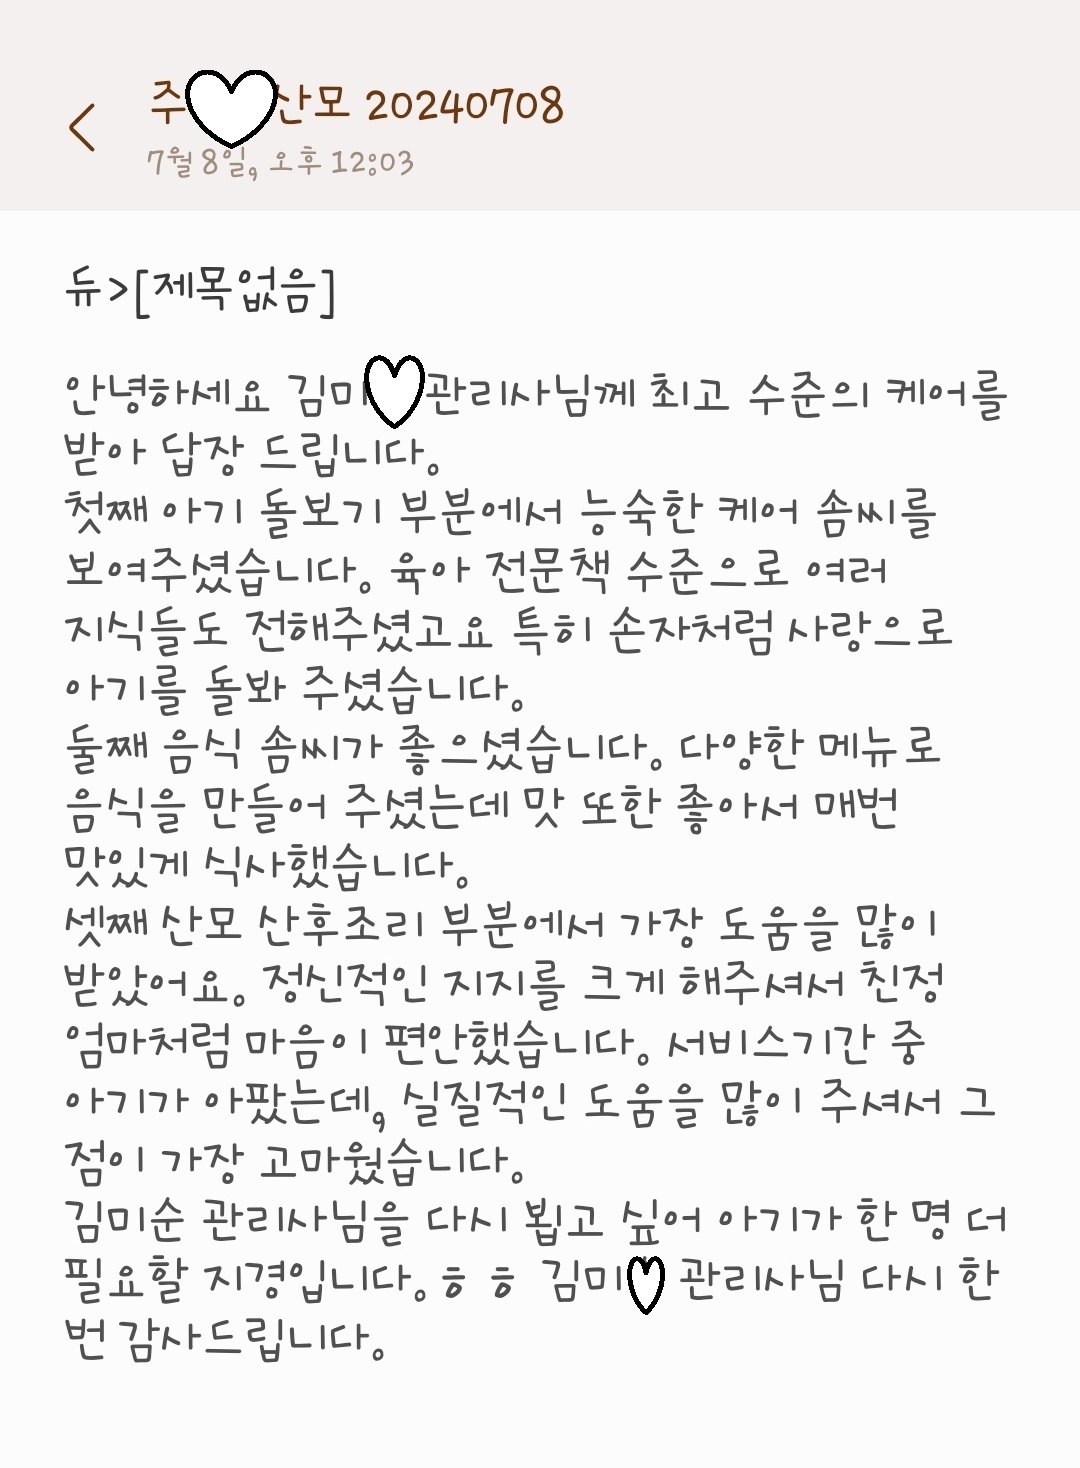 주 산모 20240708
7월 8일, 오후 12:03
듀>[제목없음]
안녕하세요 김미 관리사님께 최고 수준의 케어를
받아 답장 드립니다.
첫째 아기 돌보기 부분에서 능숙한 케어 솜씨를
보여주셨습니다. 육아 전문책 수준으로 여러
지식들도 전해주셨고요 특히 손자처럼 사랑으로
아기를 돌봐 주셨습니다.
둘째 음식 솜씨가 좋으셨습니다. 다양한 메뉴로
음식을 만들어 주셨는데 맛 또한 좋아서 매번
맛있게 식사했습니다.
셋째 산모 산후조리 부분에서 가장 도움을 많이
받았어요. 정신적인 지지를 크게 해주셔서 친정
엄마처럼 마음이 편안했습니다. 서비스기간 중
아기가 아팠는데, 실질적인 도움을 많이 주셔서 그
점이 가장 고마웠습니다.
김미순 관리사님을 다시 뵙고 싶어 아기가 한 명 더
필요할 지경입니다. ㅎ ㅎ 김미 관리사님 다시 한
번 감사드립니다.